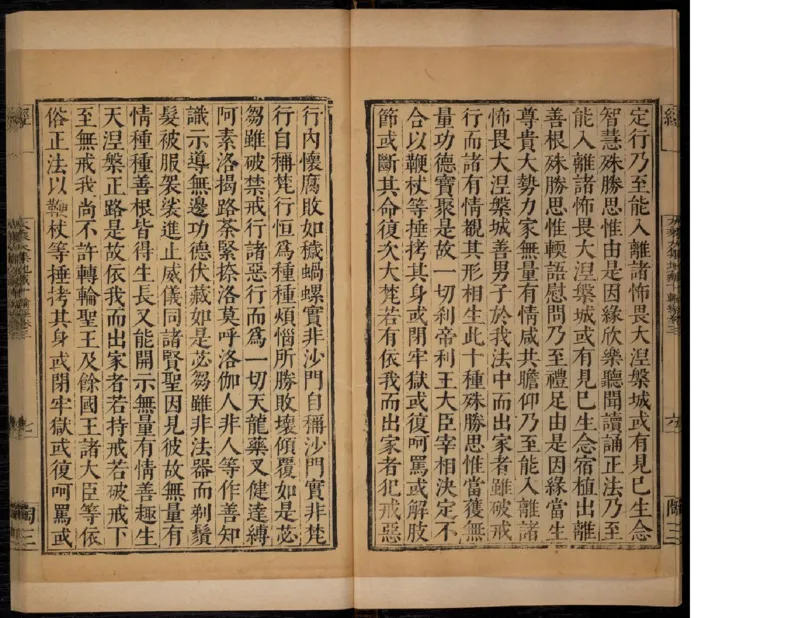 經 大乘大集地藏十輪經卷三 六 陶三
定行乃至能入離諸怖畏大涅槃城或有見已生念
智慧殊勝思惟由是因緣欣樂聽聞讀誦正法乃至
能入離諸怖畏大涅槃城或有見已生念宿植出離
善根殊勝思惟輭語慰問乃至禮足由是因緣當生
尊貴大勢力家無量有情咸共瞻仰乃至能入離諸
怖畏大涅槃城善男子於我法中而出家者雖破戒
行而諸有情觀其形相生此十種殊勝思惟當獲無
量功德寶聚是故一切刹帝利王大臣宰相決定不
合以鞭杖等捶拷其身或閉牢獄或復呵罵或解肢
節或斷其命復次大梵若有依我而出家者犯戒惡
行內懷腐敗如穢蝸螺實非沙門自稱沙門實非梵
行自稱梵行恒爲種種煩惱所勝敗壞傾覆如是苾
芻雖破禁戒行諸惡行而爲一切天龍藥叉健達縛
阿素洛揭路荼緊捺洛莫呼洛伽人非人等作善知
識示導無邊功德伏藏如是苾芻雖非法器而剃鬚
髮被服袈裟進止威儀同諸賢聖因見彼故無量有
情種種善根皆得生長又能開示無量有情善趣生
天涅槃正路是故依我而出家者若持戒若破戒下
至無戒我尚不許轉輪聖王及餘國王諸大臣等依
俗正法以鞭杖等捶拷其身或閉牢獄或復呵罵或
經 七 陶三